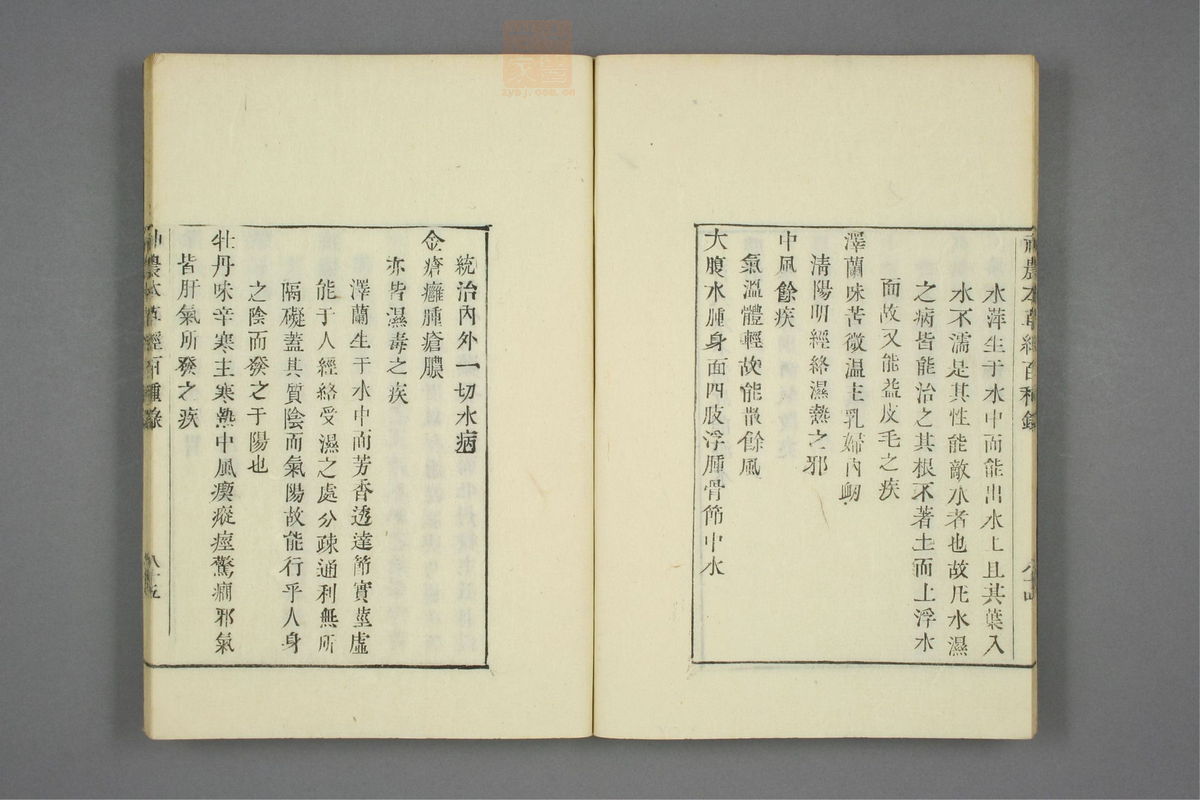 神農本草經百種錄
八十四
水萍生于水中而能出水上且其葉入
水不濡是其性能敵水者也故凡水濕
之病皆能治之其根不著土而上浮水
面故又能益皮毛之疾
澤蘭味苦微溫主乳婦內衂
清陽明經絡濕熱之邪
中風餘疾
氣溫體輕故能散餘風
大腹水腫身面四肢浮腫骨節中水
統治內外一切水病
金瘡癰腫瘡膿
亦皆濕毒之疾
澤蘭生于水中而芳香透達節實莖虛
能于人經絡受濕之處分疎通利無所
隔礙蓋其質陰而氣陽故能行乎人身
之陰而發之于陽也
牡丹味辛寒主寒熱中風瘈瘲痙驚癇邪氣
皆肝氣所發之疾
神農本草經百種錄
八十五
zysj.com.cn